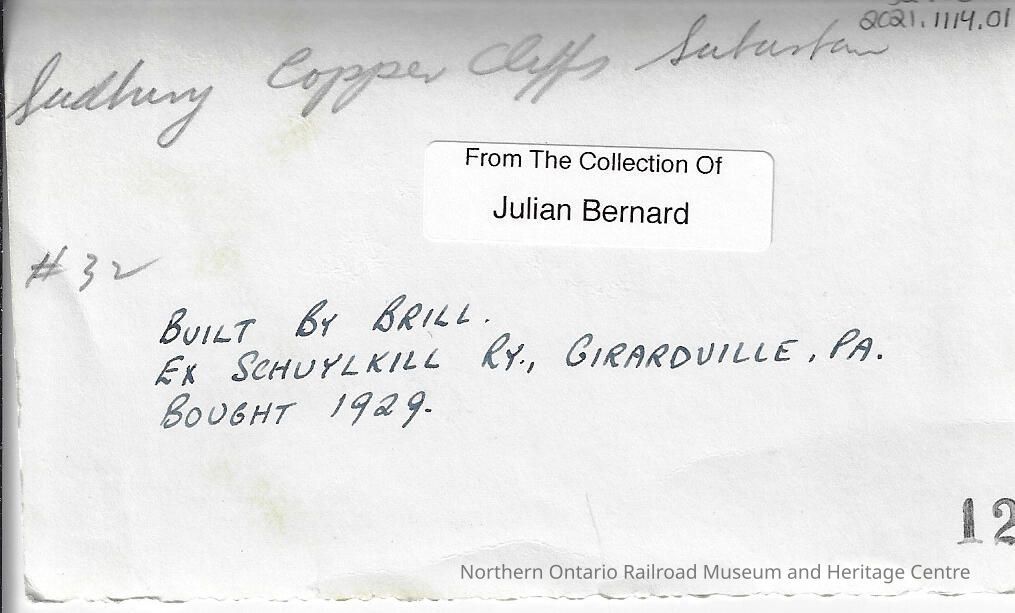 2021.1114.01
Sudbury Copper Cliffs Suburban
From The Collection Of
Julian Bernard
#32
BUILT BY BRILL.
EX SCHUYLKILL RY., GIRARDVILLE, PA.
BOUGHT 1929.
12
Northern Ontario Railroad Museum and Heritage Centre